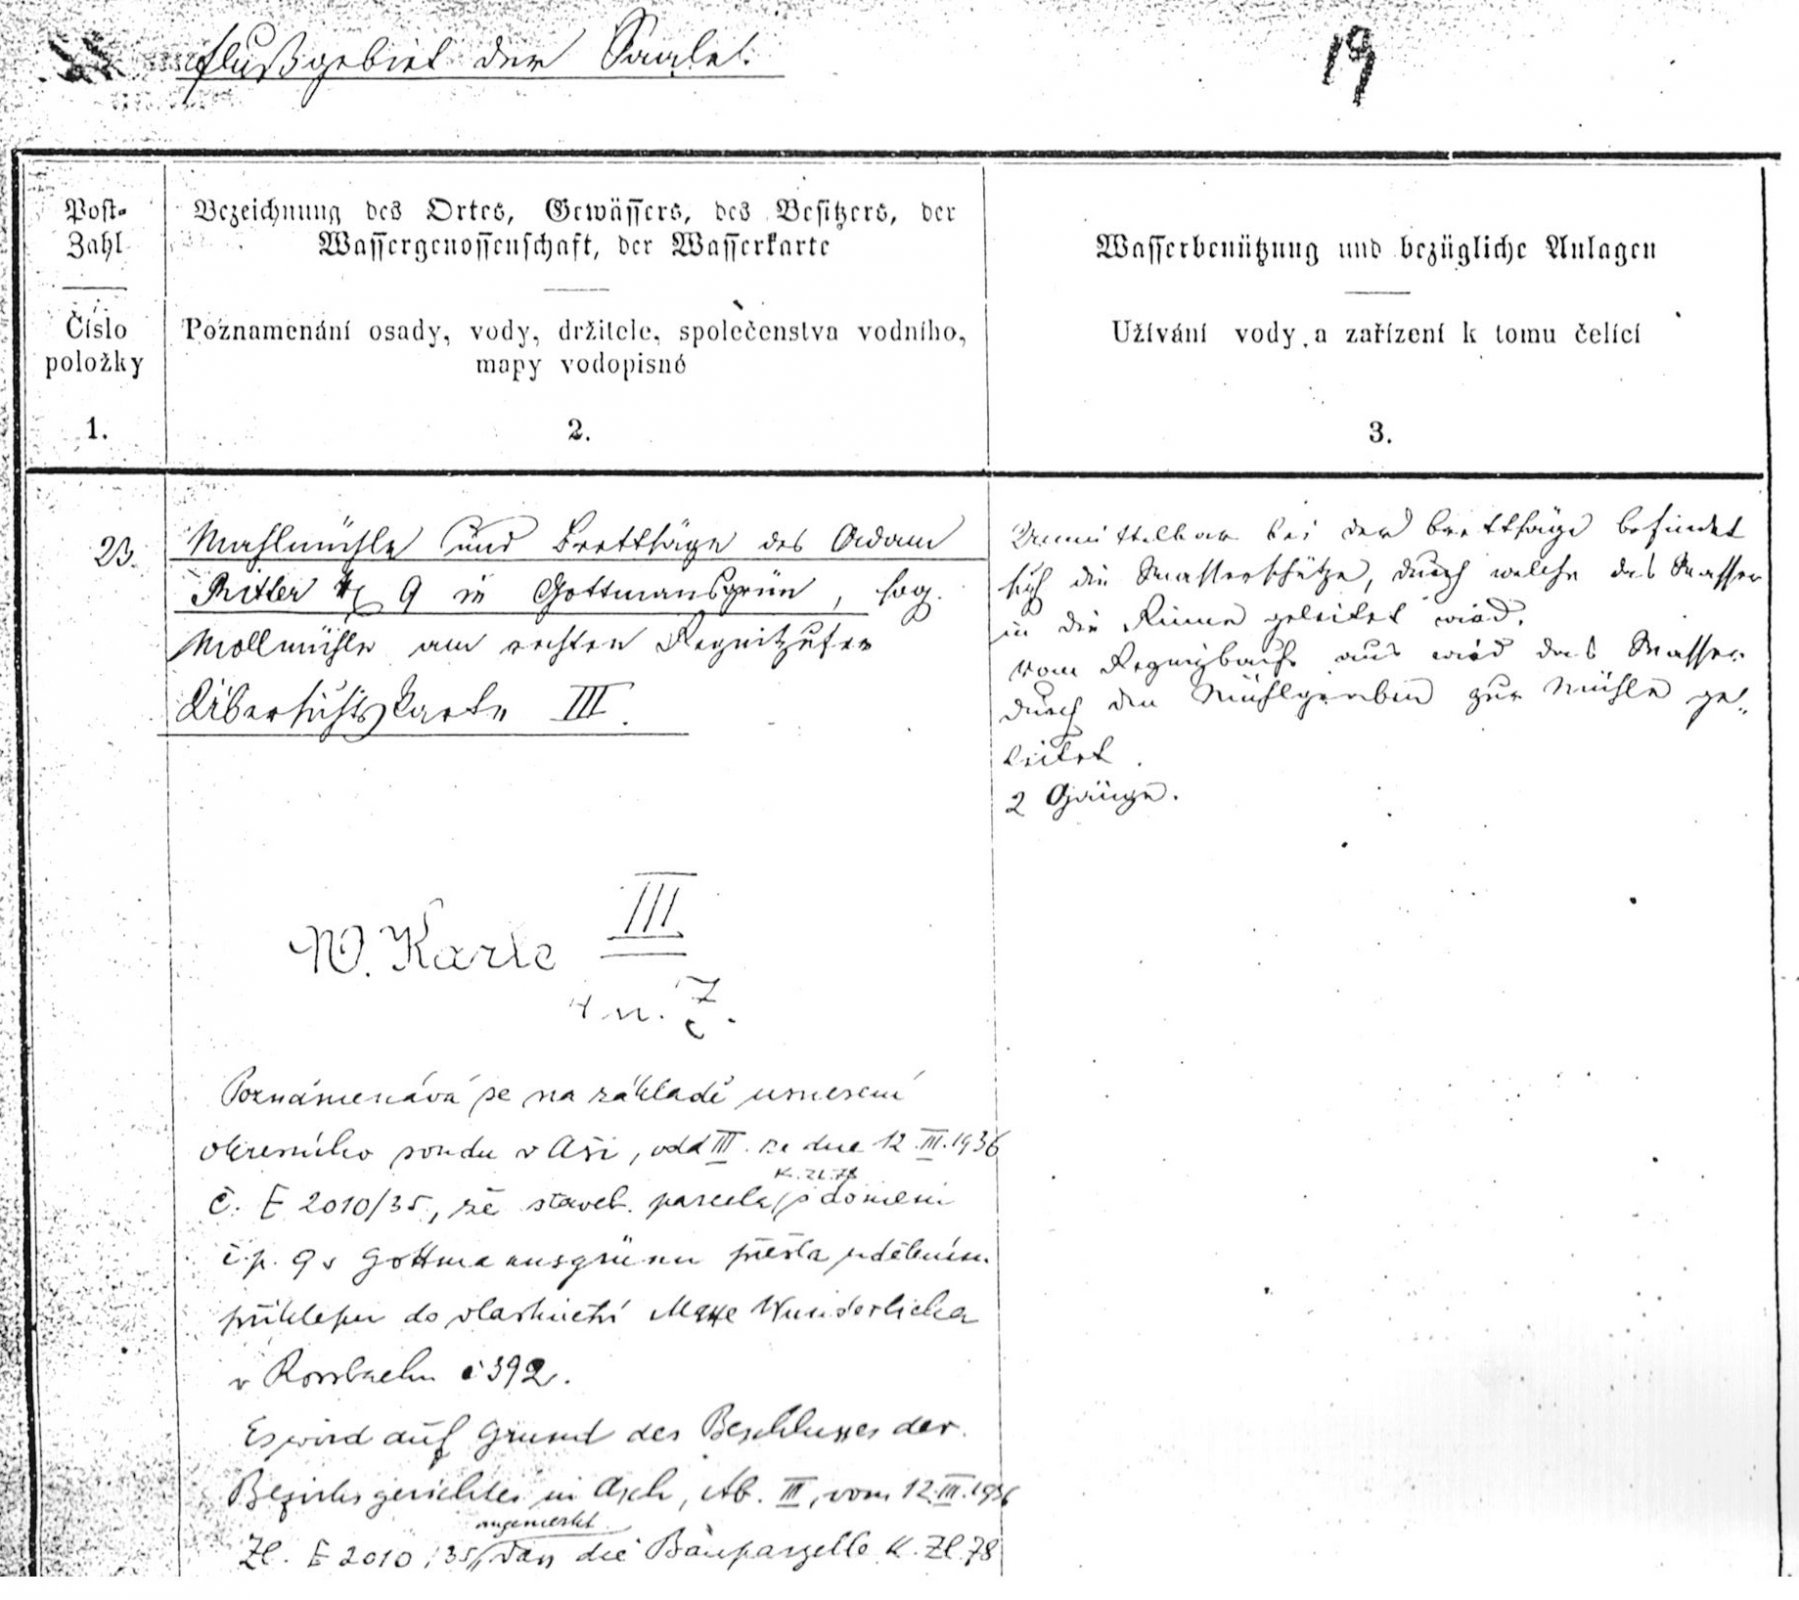 Flußgebiet der Saale.
19
Post-
Zahl
Číslo
položky
1.
Bezeichnung des Ortes, Gewässers, des Besitzers, der
Wassergenossenschaft, der Wasserkarte
Poznamenání osady, vody, držitele, společenstva vodního,
mapy vodopisné
2.
Wasserbenützung und bezügliche Anlagen
Užívání vody a zařízení k tomu čelící
3.
23.
Mahlmühle und Brettsäge des Adam
Ritter 9 in Gottmansgrün, sog.
Mollmühle am rechten Regnitzufer
Übersichtskarte III.
W. Karte III
4 u. 7.
Poznámenává se na základě usnesení
okresního soudu v Aši, odd III. ze dne 12.III.1936
K. Zl. 78
č. E 2010/35, že staveb. parcela s domem
čp. 9 v Gottmannsgrünu přešla udělením
příklepu do vlastnictví Maxe Wunderlicha
v Rossbachu č 392.
Es wird auf Grund des Beschlusses der
Bezirksgerichtes in Asch, Ab. III, vom 12.III.1936
angemerkt
Zl. E 2010/35, dass die Bauparzelle K. Zl. 78
Unmittelbar bei der Brettsäge befindet
sich die Wasserschütze, durch welche das Wasser
in die Rinne geleitet wird.
vom Regnitzbach aus wird das Wasser
durch den Mühlgraben zur Mühle ge-
leitet.
2 Gänge.